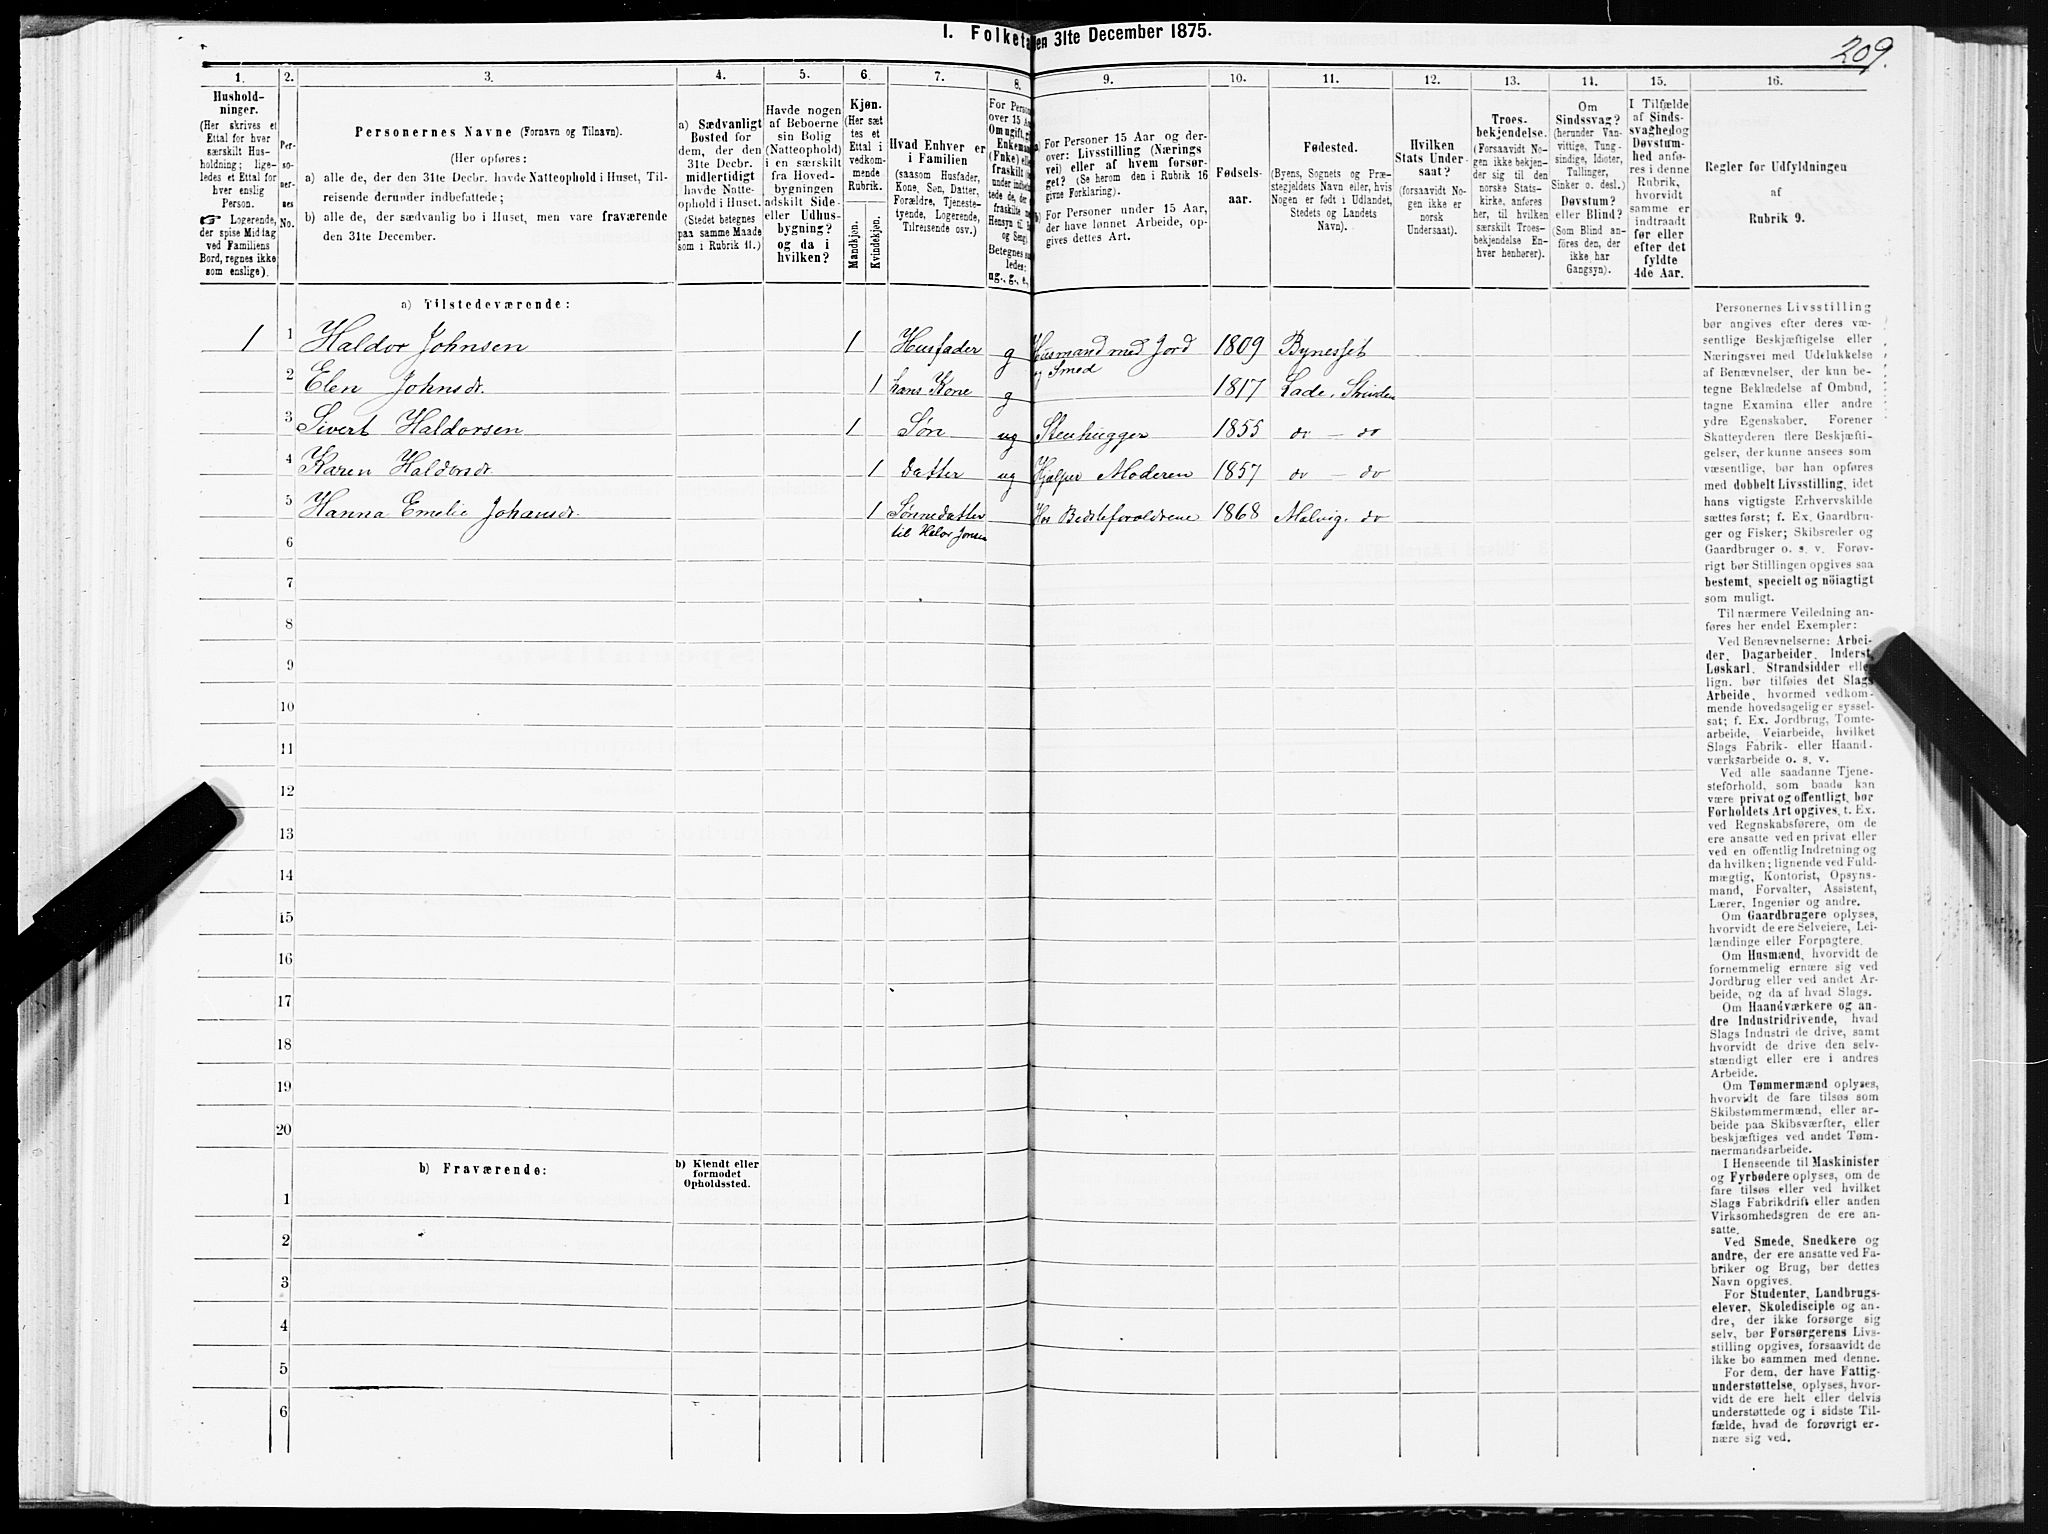 I. Folketæ
en 31te December 1875.
209.
1.
2.
3.
4.
5.
6.
7.
8.
9.
10.
11.
12.
13.
14.
15.
16.
Hushold-
ninger.
(Her skrives et
Ettal for hver
særskilt Hus-
holdning; lige-
ledes et Ettal for
hver enslig
Person.
☞ Logerende,
der spise Middag
ved Familiens
Bord, regnes ikke
som enslige).
Per-
so-
ner-
nes
No.
Personernes Navne (Fornavn og Tilnavn).
(Her opføres:
a) alle de, der den 31te Decbr. havde Natteophold i Huset, Til-
reisende derunder indbefattede;
b) alle de, der sædvanlig bo i Huset, men vare fraværende
den 31te December.
a) Sædvanligt
Bosted for
dem, der den
31te Decbr.
midlertidigt
havde Natte-
ophold i Huset.
(Stedet betegnes
paa samme Maade
som i Rubrik 11.)
Havde nogen
af Beboerne
sin Bolig
(Natteophold)
i en særskilt
fra Hoved-
bygningen
adskilt Side-
eller Udhus-
bygning?
og da i
hvilken?
Kjøn.
(Her sæt
tes et
Ettal i
vedkom-
mende
Rubrik.
Mandkjøn.
Kvindekjøn.
Hvad Enhver er
i Familien
(saasom Husfader,
Kone, Søn, Datter,
Forældre, Tjeneste-
tyende, Logerende,
Tilreisende osv.)
For Perso
over 15 Aar
Om ugift, g
Enkeman
(Fnke) elle
fraskilt
Betegnes sa
ledes:
ug., g., e.,
a) For Personer 15 Aar og der-
over: Livsstilling (Nærings
vei) eller af hvem forsør-
get? (Se herom den i Rubrik 16
givne Forklaring).
b) For Personer under 15 Aar,
der have lønnet Arbeide, op-
gives dettes Art.
Fødsels-
aar.
Fødested.
(Byens, Sognets og Præ-
stegjeldets Navn eller, hvis
Nogen er født i Udlandet,
Stedets og Landets
Navn).
Hvilken
Stats Under-
saat?
(forsaavidt No-
gen ikke er
norsk
Undersaat).
Troes-
bekjendelse.
(Forsaavidt No-
gen ikke bekjen-
der sig til den
norske Stats-
kirke, anføres
her, til hvilken
særskilt Troes-
bekjendelse En-
hver henhører).
Om
Sindssvag?
(herunder Van-
vittige, Tung-
sindige, Idioter,
Tullinger,
Sinker o. desl.)
Døvstum?
eller Blind?
(Som Blind an-
føres den, der
ikke har
Gangsyn).
I Tilfælde
af Sinds-
svaghed og
Døvstum-
hed anfø-
res i denne
Rubrik,
hvorvidt
samme er
indtraadt
før eller
efter det
fyldte
4de Aar.
Regler før Udfyldningen
af
Rubrik 9.
a) Tilstedeværende:
1 1 Haldor Johnsen 1 Husfader g Husmand med Jord og Smed 1809 Bynesset
2 Elen Johnsdr. 1 hans Kone g 1817 Lade, Strinden
3 Sivert Haldorsen 1 Søn ug Stenhugger 1855 do – do
4 Karen Haldorsdr. 1 datter ug Hjelper Moderen 1857 do – do
5 Hanna Emelie Johansdr. 1 Sønnedatter til Halor Jonsen Hos Bedsteforældrene 1868 Malvig. do
6
7
8
9
10
11
12
13
14
15
16
17
18
19
20
b) Fraværende:
b) Kjendt eller
formodet
Opholdssted.
1
2
3
4
5
6
Personernes Livsstilling
bør angives efter deres væ-
sentlige Beskjæftigelse eller
Næringsvei med Udelukkelse
af Benævnelser, der kun be-
tegne Beklædelse af Ombud,
tagne Examina eller andre
ydre Egenskaber. Forener
Skatteyderen flere Beskjæfti-
gelser, der kunne ansees som
væsentlige, bør han opføres
med dobbelt Livsstilling, idet
hans vigtigste Erhvervskilde
sættes først; f. Ex. Gaardbru-
ger og Fisker; Skibsreder og
Gaardbruger o. s. v. Forøv-
rigt bør Stillingen opgives saa
bestemt, specielt og nöiagtigt
som muligt.
Til nærmere Veiledning an-
føres her endel Exempler:
Ved Benævnelserne: Arbei-
der, Dagarbeider, Inderst,
Løskarl, Strandsidder eller
lign. bør tilføies det Slags
Arbeide, hvormed vedkom-
mende hovedsagelig er syssel-
sat; f. Ex. Jordbrug, Tomte-
arbeide, Veiarbeide, hvilket
Slags Fabrik- eller Haand-
værksarbeide o. s. v.
Ved alle saadanne Tjene-
steforhold, som baade kan
være privat og offentligt, bør
Forholdets Art opgives, t. Ex.
ved Regnskabsførere, om de
ere ansatte ved en privat eller
ved en offentlig Indretning og
da hvilken; lignende ved Fuld-
mægtig, Kontorist, Opsyns-
mand, Forvalter, Assistent,
Lærer, Ingeniør og andre.
Om Gaardbrugere oplyses,
hvorvidt de ere Selveiere, Lei-
lændinge eller Forpagtere.
Om Husmænd, hvorvidt de
fornemmelig ernære sig ved
Jordbrug eller ved andet Ar-
beide, og da af hvad Slags.
Om Haandværkere og an-
dre Industridrivende, hvad
Slags Industri de drive, samt
hvorvidt de drive den selv-
stændigt eller ere i andres
Arbeide.
Om Tømmermænd oplyses,
hvorvidt de fare tilsøs som
Skibstømmermænd, eller ar-
beide paa Skibsværfter, eller
beskjæftiges ved andet Tøm-
mermandsarbeide.
I Henseende til Maskinister
og Fyrbødere oplyses, om de
fare tilsøs eller ved hvilket
Slags Fabrikdrift eller anden
Virksomhedsgren de ere an-
satte.
Ved Smede, Snedkere og
andre, der ere ansatte ved Fa-
briker og Brug, bør dettes
Navn opgives.
For Studenter, Landbrugs-
elever, Skoledisciple og an-
dre, der ikke forsørge sig
selv, bør Forsørgerens Livs-
stilling opgives, forsaavidt de
ikke bo sammen med denne.
For dem, der have Fattig-
understøttelse, oplyses, hvor-
vidt de ere helt eller delvis
understøttede og i sidste Til-
fælde, hvad de forøvrigt er-
nære sig ved.